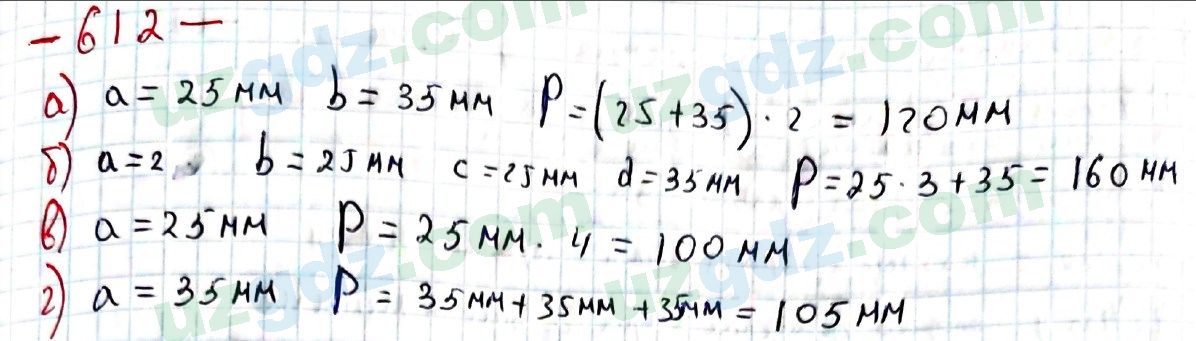 - 612 -
а) a = 25 мм b = 35 мм P = (25 + 35) · 2 = 120 мм
б) a = 2 b = 25 мм c = 25 мм d = 35 мм P = 25 · 3 + 35 = 160 мм
в) a = 25 мм P = 25 мм · 4 = 100 мм
г) a = 35 мм P = 35 мм + 35 мм + 35 мм = 105 мм
uzgdz.com
uzgdz.com
uzgdz.com
uzgdz.com